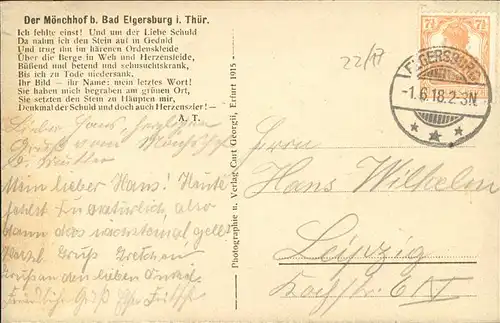 Der Mönchhof b. Bad Elgersburg i. Thür.
Ich fehlte einst! Und um der Liebe Schuld
Da nahm ich den Stein auf in Geduld
Und trug ihn im härenen Ordenskleide
Über die Berge in Weh und Herzensleide,
Büßend und betend und sehnsuchtskrank,
Bis ich zu Tode niedersank.
Ihr Bild – ihr Name: mein letztes Wort!
Sie haben mich begraben am grünen Ort,
Sie setzten den Stein zu Häupten mir,
Denkmal der Schuld und doch auch Herzenszier! –
A. T.
Lieber Hans, herzlichen
Gruß vom Mönchhof
Mein lieber Hans! Heute
fehlst Du natürlich, also
dann das nächstemal gelt?
Herzl. Gruß Gretchen.
Gruß an den lieben Onkel.
Photographie u. Verlag Carl Georgi, Erfurt 1915
22/17
7½ 7½
ELGERSBURG
-1.6.18.2-3N
Herrn
Hans Wilhelm
Leipzig
Kochstr. 6 IV